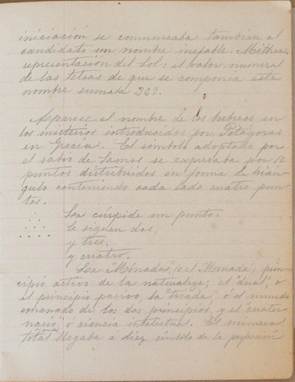 iniciación se comunicaba tambien al
candidato un nombre inefable. Mithra,
representacion del Sol: el valor numeral
de las letras de que se componia este
nombre sumaba 362.
Aparece el nombre de los hebreos en
los misterios introducidos por Pitágoras
en Grecia. El símbolo adoptado por
el sabio de Samos se expresaba por 10
puntos distribuidos en forma de trián-
gulo conteniendo cada lado cuatro pun-
tos.
Los cúspide un punto.
le siguen dos,
y tres,
y cuatro.
Los Mónadas, o el Monada, prin-
cipio activo de la naturaleza; el dual, o
el principio pasivo, la triada, o el mundo
emanado de los dos principios, y el cuater-
nario, o ciencia intelectual. El número
total llegaba a diez, símbolo de la perfección